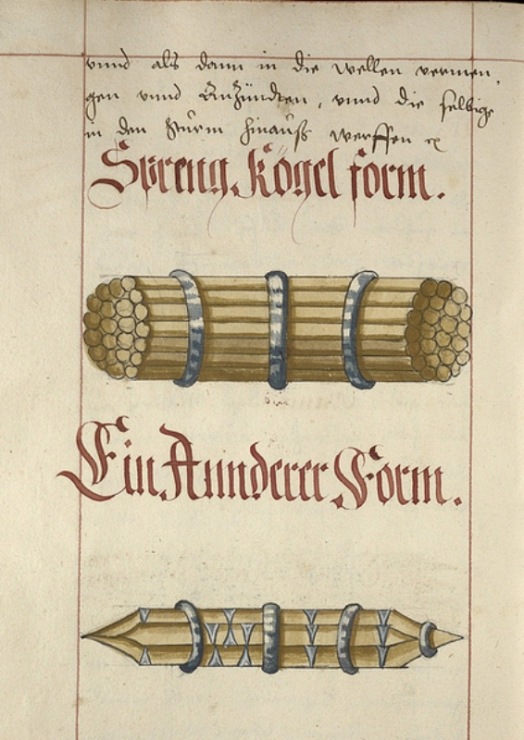 vnnd als dann in die wellen vermen,
gen vnnd Anzündten, vnnd die selbige
in den Sturm hinauß werffen ꝛc
Spreng Kögel form.
Ein Annderer Form.